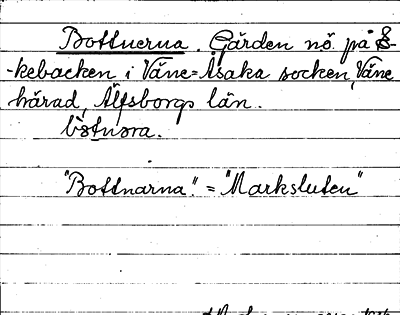 Bottnerna. Gården nö. på
-kebacken i Väne-Åsaka socken, Väne
härad, Älfsborgs län.
bòtnɷra.
"Bottnarna" = "Marksluten"